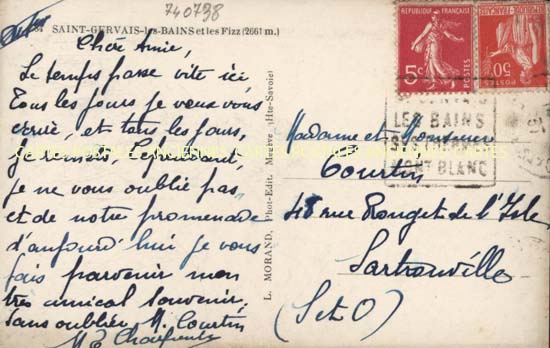 740798
SAINT-GERVAIS-les-BAINS et les Fizz (2661 m.)
Chère Amie,
Le temps passe vite ici,
Tous les jours je veux vous
écrire, et tous les jours,
je remets. Cependant,
je ne vous oublie pas
et de notre promenade
d'aujourd'hui je vous
fais parvenir mon
très amical souvenir,
sans oublier M. Courtin
L. MORAND, Phot-Edit. Megève (Hte-Savoie)
RÉPUBLIQUE FRANÇAISE
5c
POSTES
50c
POSTES
LES BAINS
MONT BLANC
Madame et Monsieur
Courtin
48 rue Rouget de l'Isle
Sartrouville
(S et O)